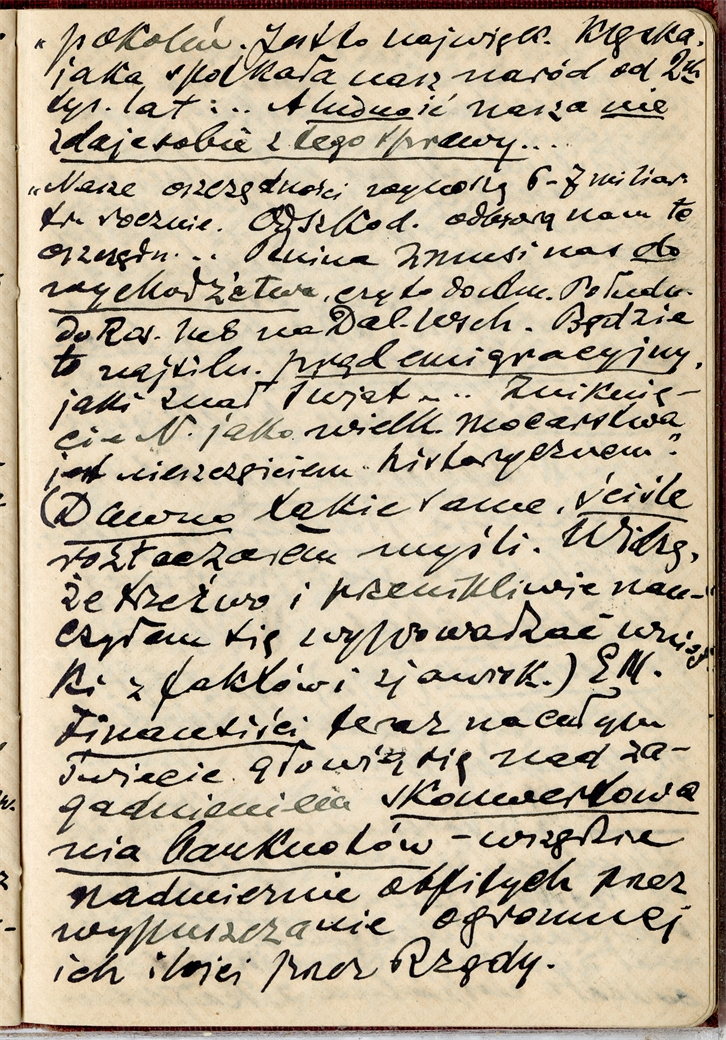 „pokoleń. Jest to najwięk. klęska,
jaka spotkała nasz naród od 2ch
tys. lat: .. A ludność nasza nie
zdaje sobie z tego sprawy...
„Nasze oszczędności wynoszą 6-7 miliar-
dów rocznie. Odszkod. odbiorą nam te
oszczędn... Ruina zmusi nas do
wychodźctwa, czy to do Am. Połudn.
do Ros. lub na Dal. Wsch. Będzie
to najsiln. prąd emigracyjny,
jaki znał świat... Zniknię-
cie N. jako wielk. mocarstwa
jest nieszczęściem historycznem"
(Dawno takie same, ściśle
roztaczałem myśli. Widzę,
że trzeźwo i przenikliwie nau-
czyłem się wyprowadzać wnios-
ki z faktów i zjawisk.) EM.
Finansiści teraz na całym
świecie głowią się nad za-
gadnieniem skonwertowa
nia banknotów - wszędzie
nadmiernie obfitych przez
wypuszczanie ogromnej
ich ilości przez Rządy.